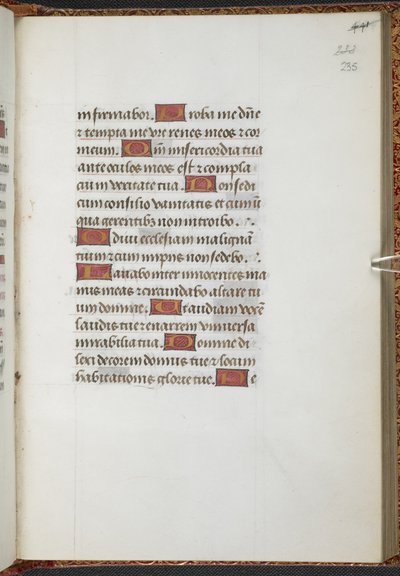 222
235
infirmabor. Proba me dñe
⁊ tempta me vre renes meos ⁊ cor
meum. Qm̃ misericordia tua
ante oculos meos est ⁊ compla
cui in veritate tua. Non sedi
cum consilio vanitatis et cum ĩi
qua gerentibꝫ non introibo.
Odiui ecclesiam malignã
tium ⁊ cum impiis non sedebo.
Lauabo inter innocentes ma
nus meas ⁊ circundabo altare tu
um domine. Ut audiam vocẽ
laudis tue ⁊ enarrem vniuersa
mirabilia tua. Domine di
lexi decorem domus tue ⁊ locum
habitationis glorie tue. Ne